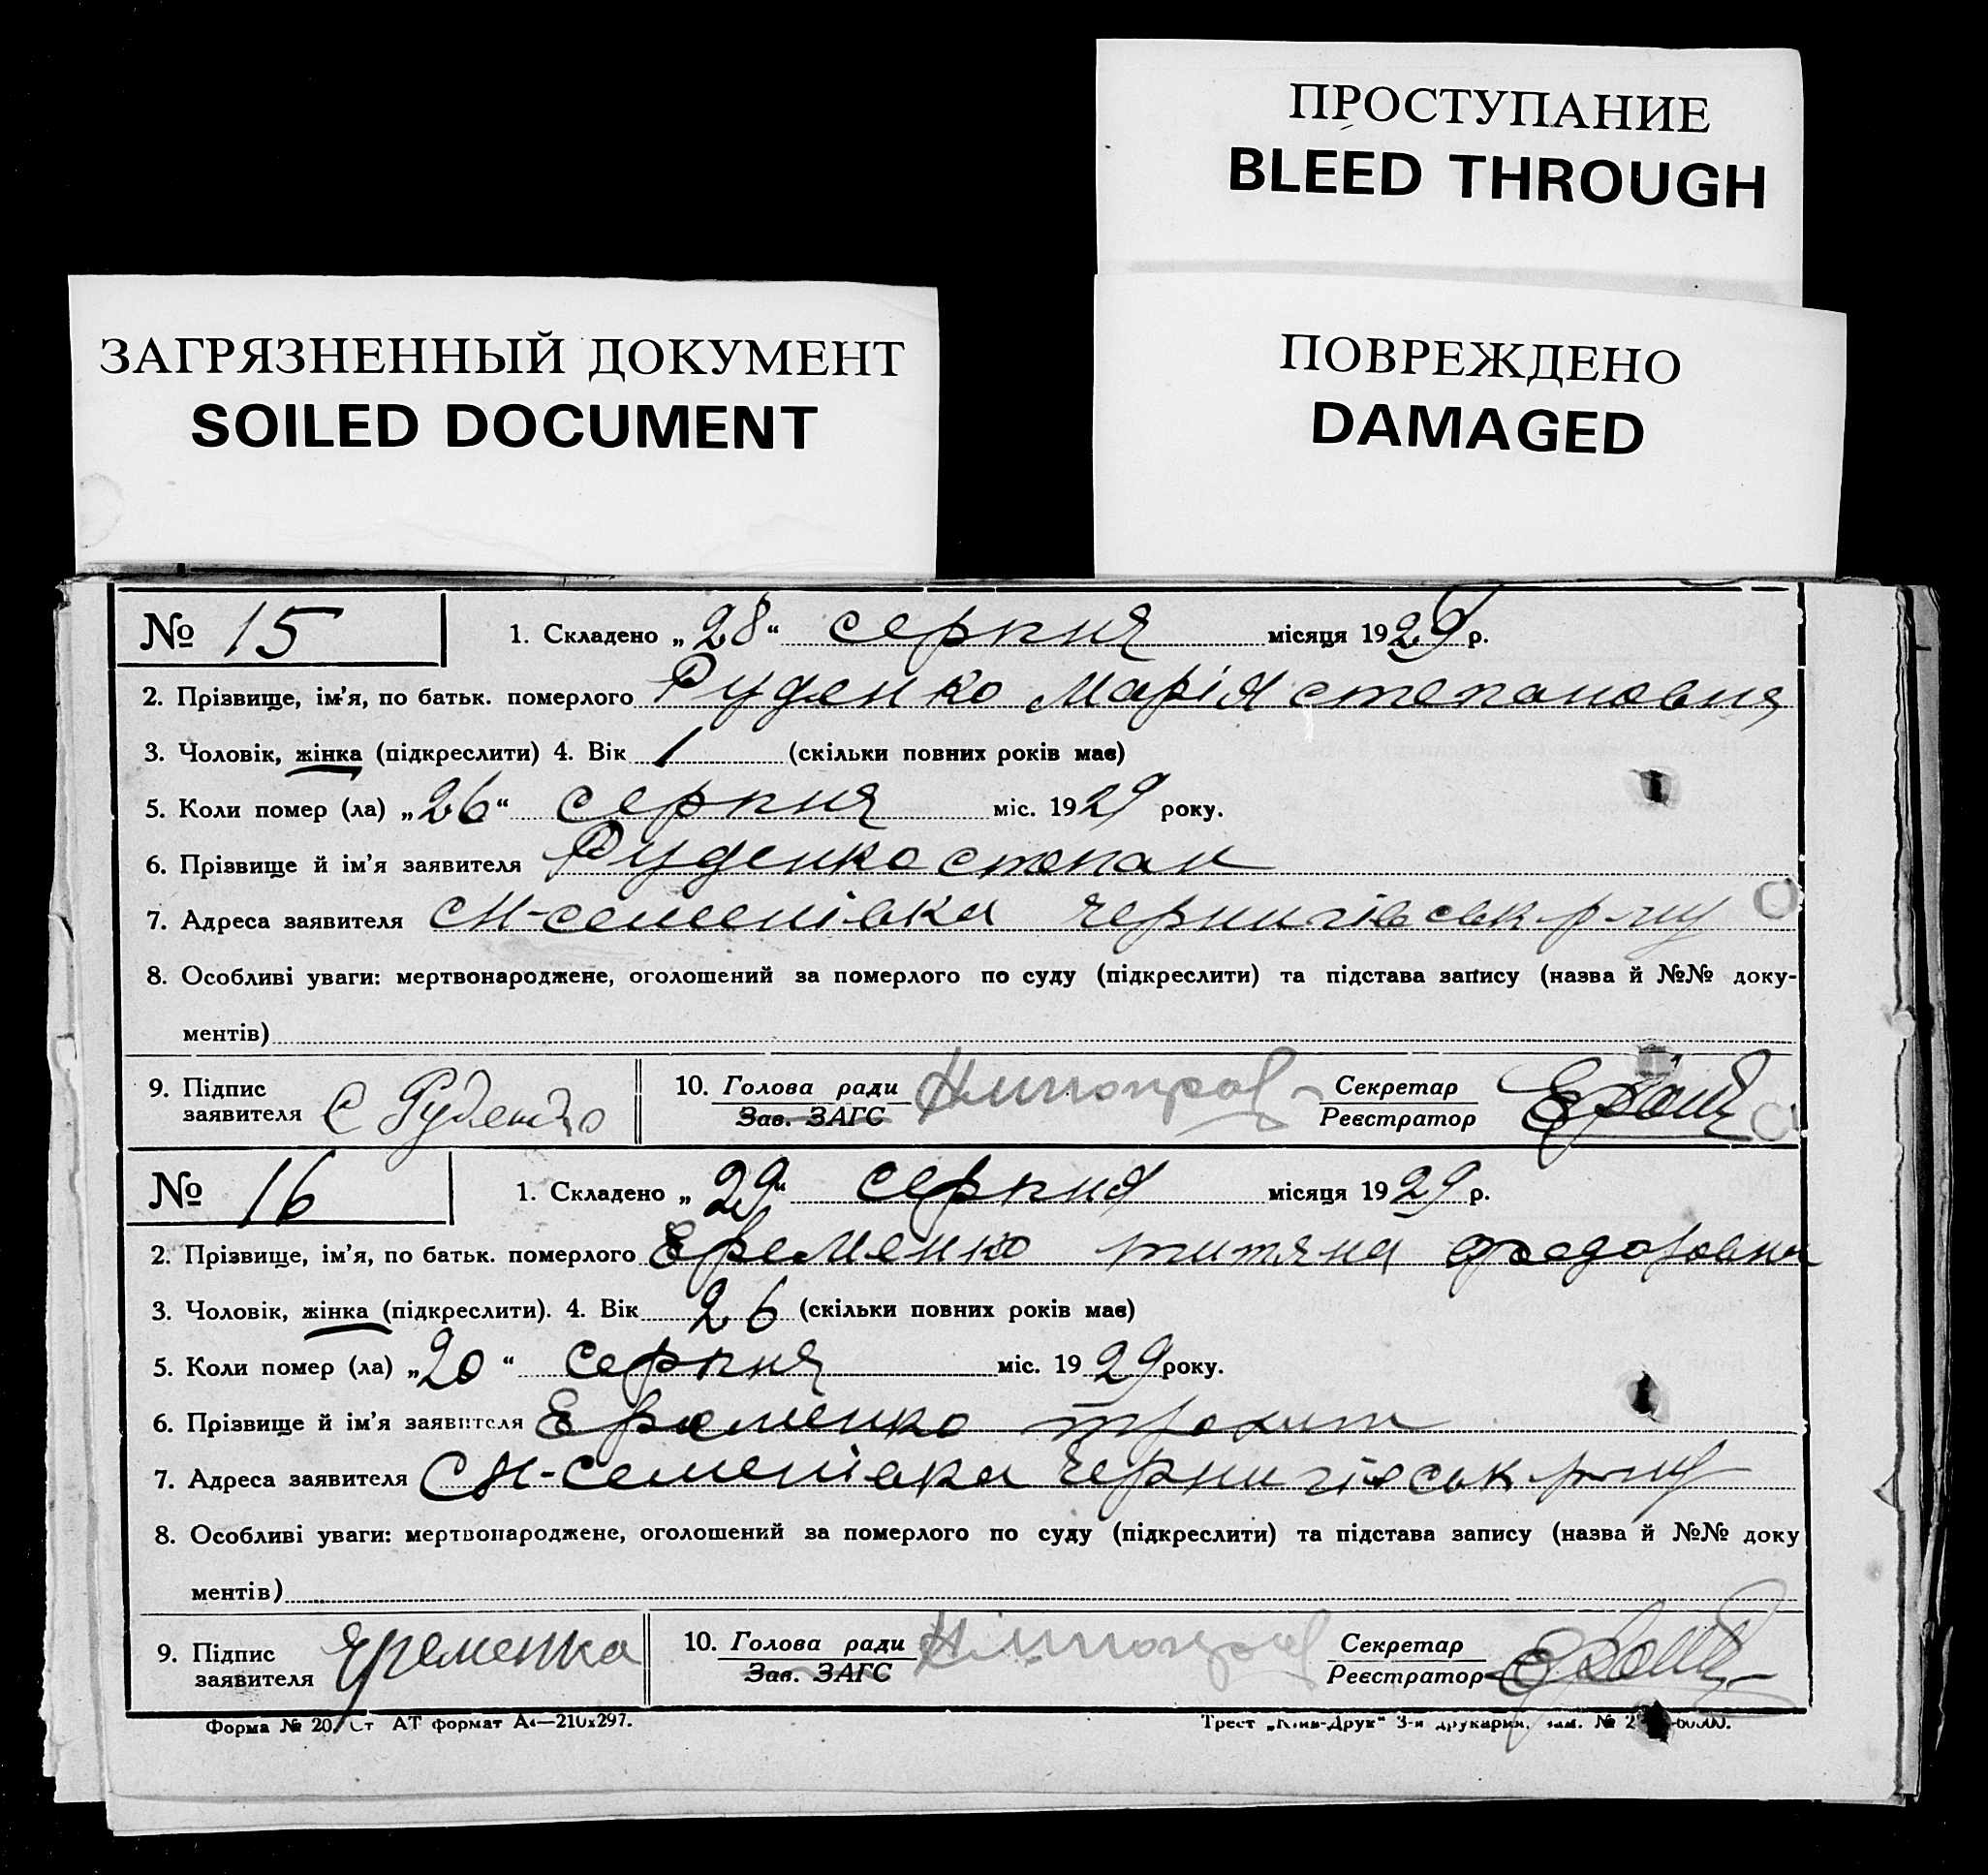 ПРОСТУПАНИЕ
BLEED THROUGH
ЗАГРЯЗНЕННЫЙ ДОКУМЕНТ
SOILED DOCUMENT
ПОВРЕЖДЕНО
DAMAGED
№ 15
1. Складено „28“ серпня місяця 1929 р.
2. Прізвище, ім'я, по батьк. померлого Руденко Марія степановня
3. Чоловік, жінка (підкреслити) 4. Вік 1 (скільки повних років має)
5. Коли помер (ла) „26“ серпня міс. 1929 року.
6. Прізвище й ім'я заявителя Руденко степан
7. Адреса заявителя см-семенівка чернигівськ р-ну
8. Особливі уваги: мертвонароджене, оголошений за померлого по суду (підкреслити) та підстава запису (назва й №№ доку-
ментів)
9. Підпис заявителя С Руденко 10. Голова ради Зав. ЗАГС Секретар Реєстратор
№ 16
1. Складено „29“ серпня місяця 1929 р.
2. Прізвище, ім'я, по батьк. померлого Еременко титяна федоровна
3. Чоловік, жінка (підкреслити). 4. Вік 26 (скільки повних років має)
5. Коли помер (ла) „20“ серпня міс. 1929 року.
6. Прізвище й ім'я заявителя Еременко
7. Адреса заявителя см-семенівка чернигівськ р-ну
8. Особливі уваги: мертвонароджене, оголошений за померлого по суду (підкреслити) та підстава запису (назва й №№ доку
ментів)
9. Підпис заявителя Яременка 10. Голова ради Зав. ЗАГС Секретар Реєстратор
Форма № 20. Ст АТ формат А4—210х297.
Трест „Київ-Друк“ 3-я друкарня, зам. №